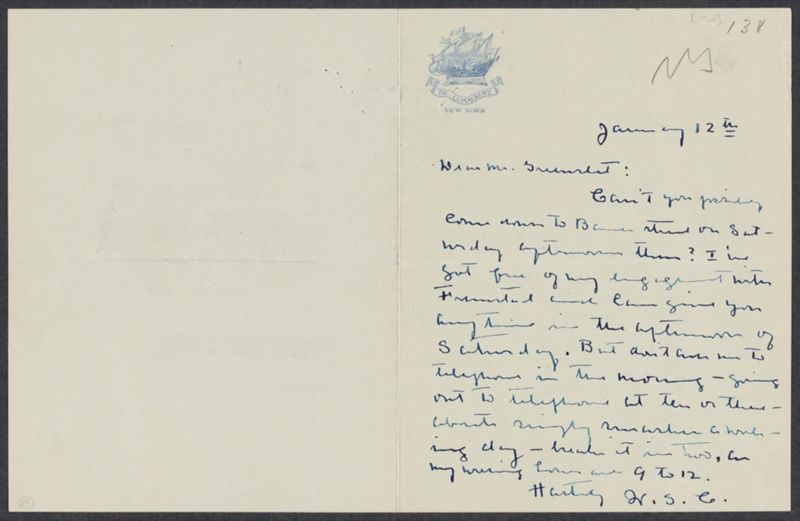 138
NEW YORK
January 12th
Dear Mr. Greenslet:
Can't you possibly
come down to Bank street on Sat-
urday afternoon then? I've
got free of my engagement with
and can give you
any time in the afternoon of
Saturday. But don't ask me to
telephone in the morning - going
out to telephone at ten or there-
abouts simply smashes a work-
ing day - breaks it in two, as
my working hours are 9 to 12.
Hastily W. S. C.